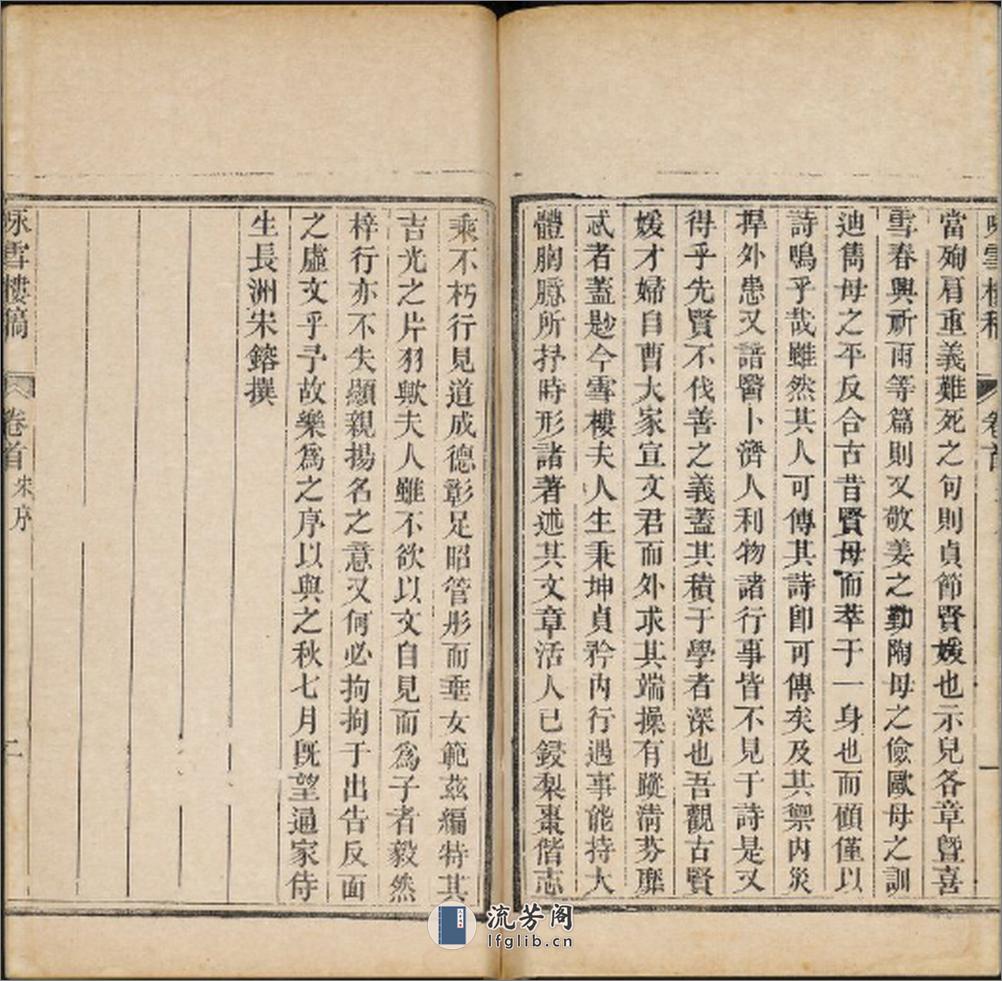 咏雪樓稿 卷首 一
當殉肩重義難死之句則貞節賢媛也示兒各章暨喜
雪春興祈雨等篇則又敬姜之勤陶母之儉歐母之訓
迪雋母之平反合古昔賢母而萃于一身也而顧僅以
詩鳴乎哉雖然其人可傳其詩卽可傳矣及其禦内災
捍外患又諳醫卜濟人利物諸行事皆不見于詩是又
得乎先賢不伐善之義蓋其積于學者深也吾觀古賢
媛才婦自曹大家宣文君而外求其端操有蹤淸芬靡
忒者蓋尟今雪樓夫人生秉坤貞矜内行遇事能持大
體胸臆所抒時形諸著述其文章活人已鋟梨棗偕志
乘不朽行見道成德彰足昭管彤而垂女範茲編特其
吉光之片羽歟夫人雖不欲以文自見而爲子者毅然
梓行亦不失顯親揚名之意又何必拘拘于出告反面
之虛文乎予故樂爲之序以與之秋七月旣望通家侍
生長洲宋鎔撰
咏雪樓稿 卷首 宋序 二
流芳阁
lfglib.cn